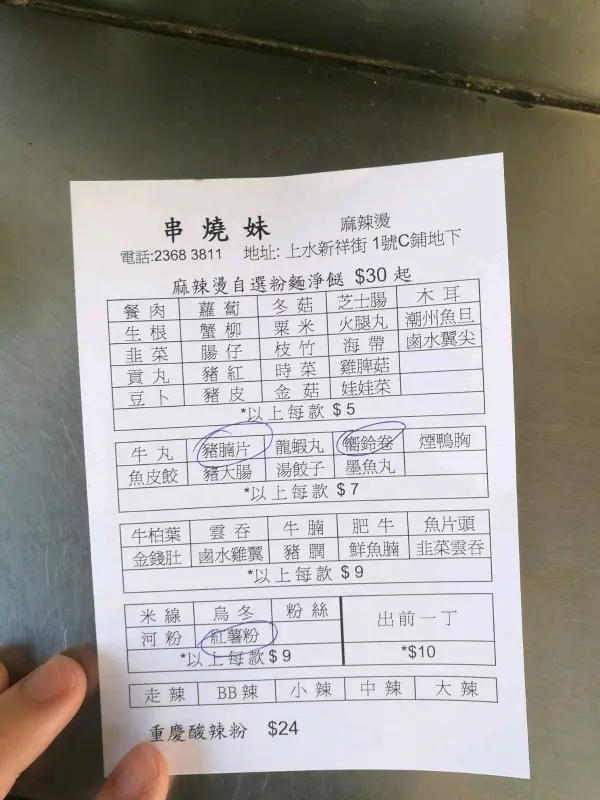 串燒妹 麻辣燙
電話:2368 3811 地址: 上水新祥街 1號C鋪地下
麻辣燙自選粉麵淨餸 $30 起
餐肉 蘿蔔 冬菇 芝士腸 木耳
生根 蟹柳 粟米 火腿丸 潮州魚旦
韭菜 腸仔 枝竹 海帶 鹵水翼尖
貢丸 豬紅 時菜 雞脾菇
豆卜 豬皮 金菇 娃娃菜
*以上每款 $ 5
牛丸 豬腩片 龍蝦丸 嚮鈴卷 煙鴨胸
魚皮餃 豬大腸 湯餃子 墨魚丸
*以上每款 $ 7
牛柏葉 雲吞 牛腩 肥牛 魚片頭
金錢肚 鹵水雞翼 豬膶 鮮魚腩 韭菜雲吞
*以上每款 $ 9
米線 烏冬 粉絲 出前一丁
河粉 紅薯粉
*以上每款 $ 9 *$10
走辣 BB辣 小辣 中辣 大辣
重慶酸辣粉 $24